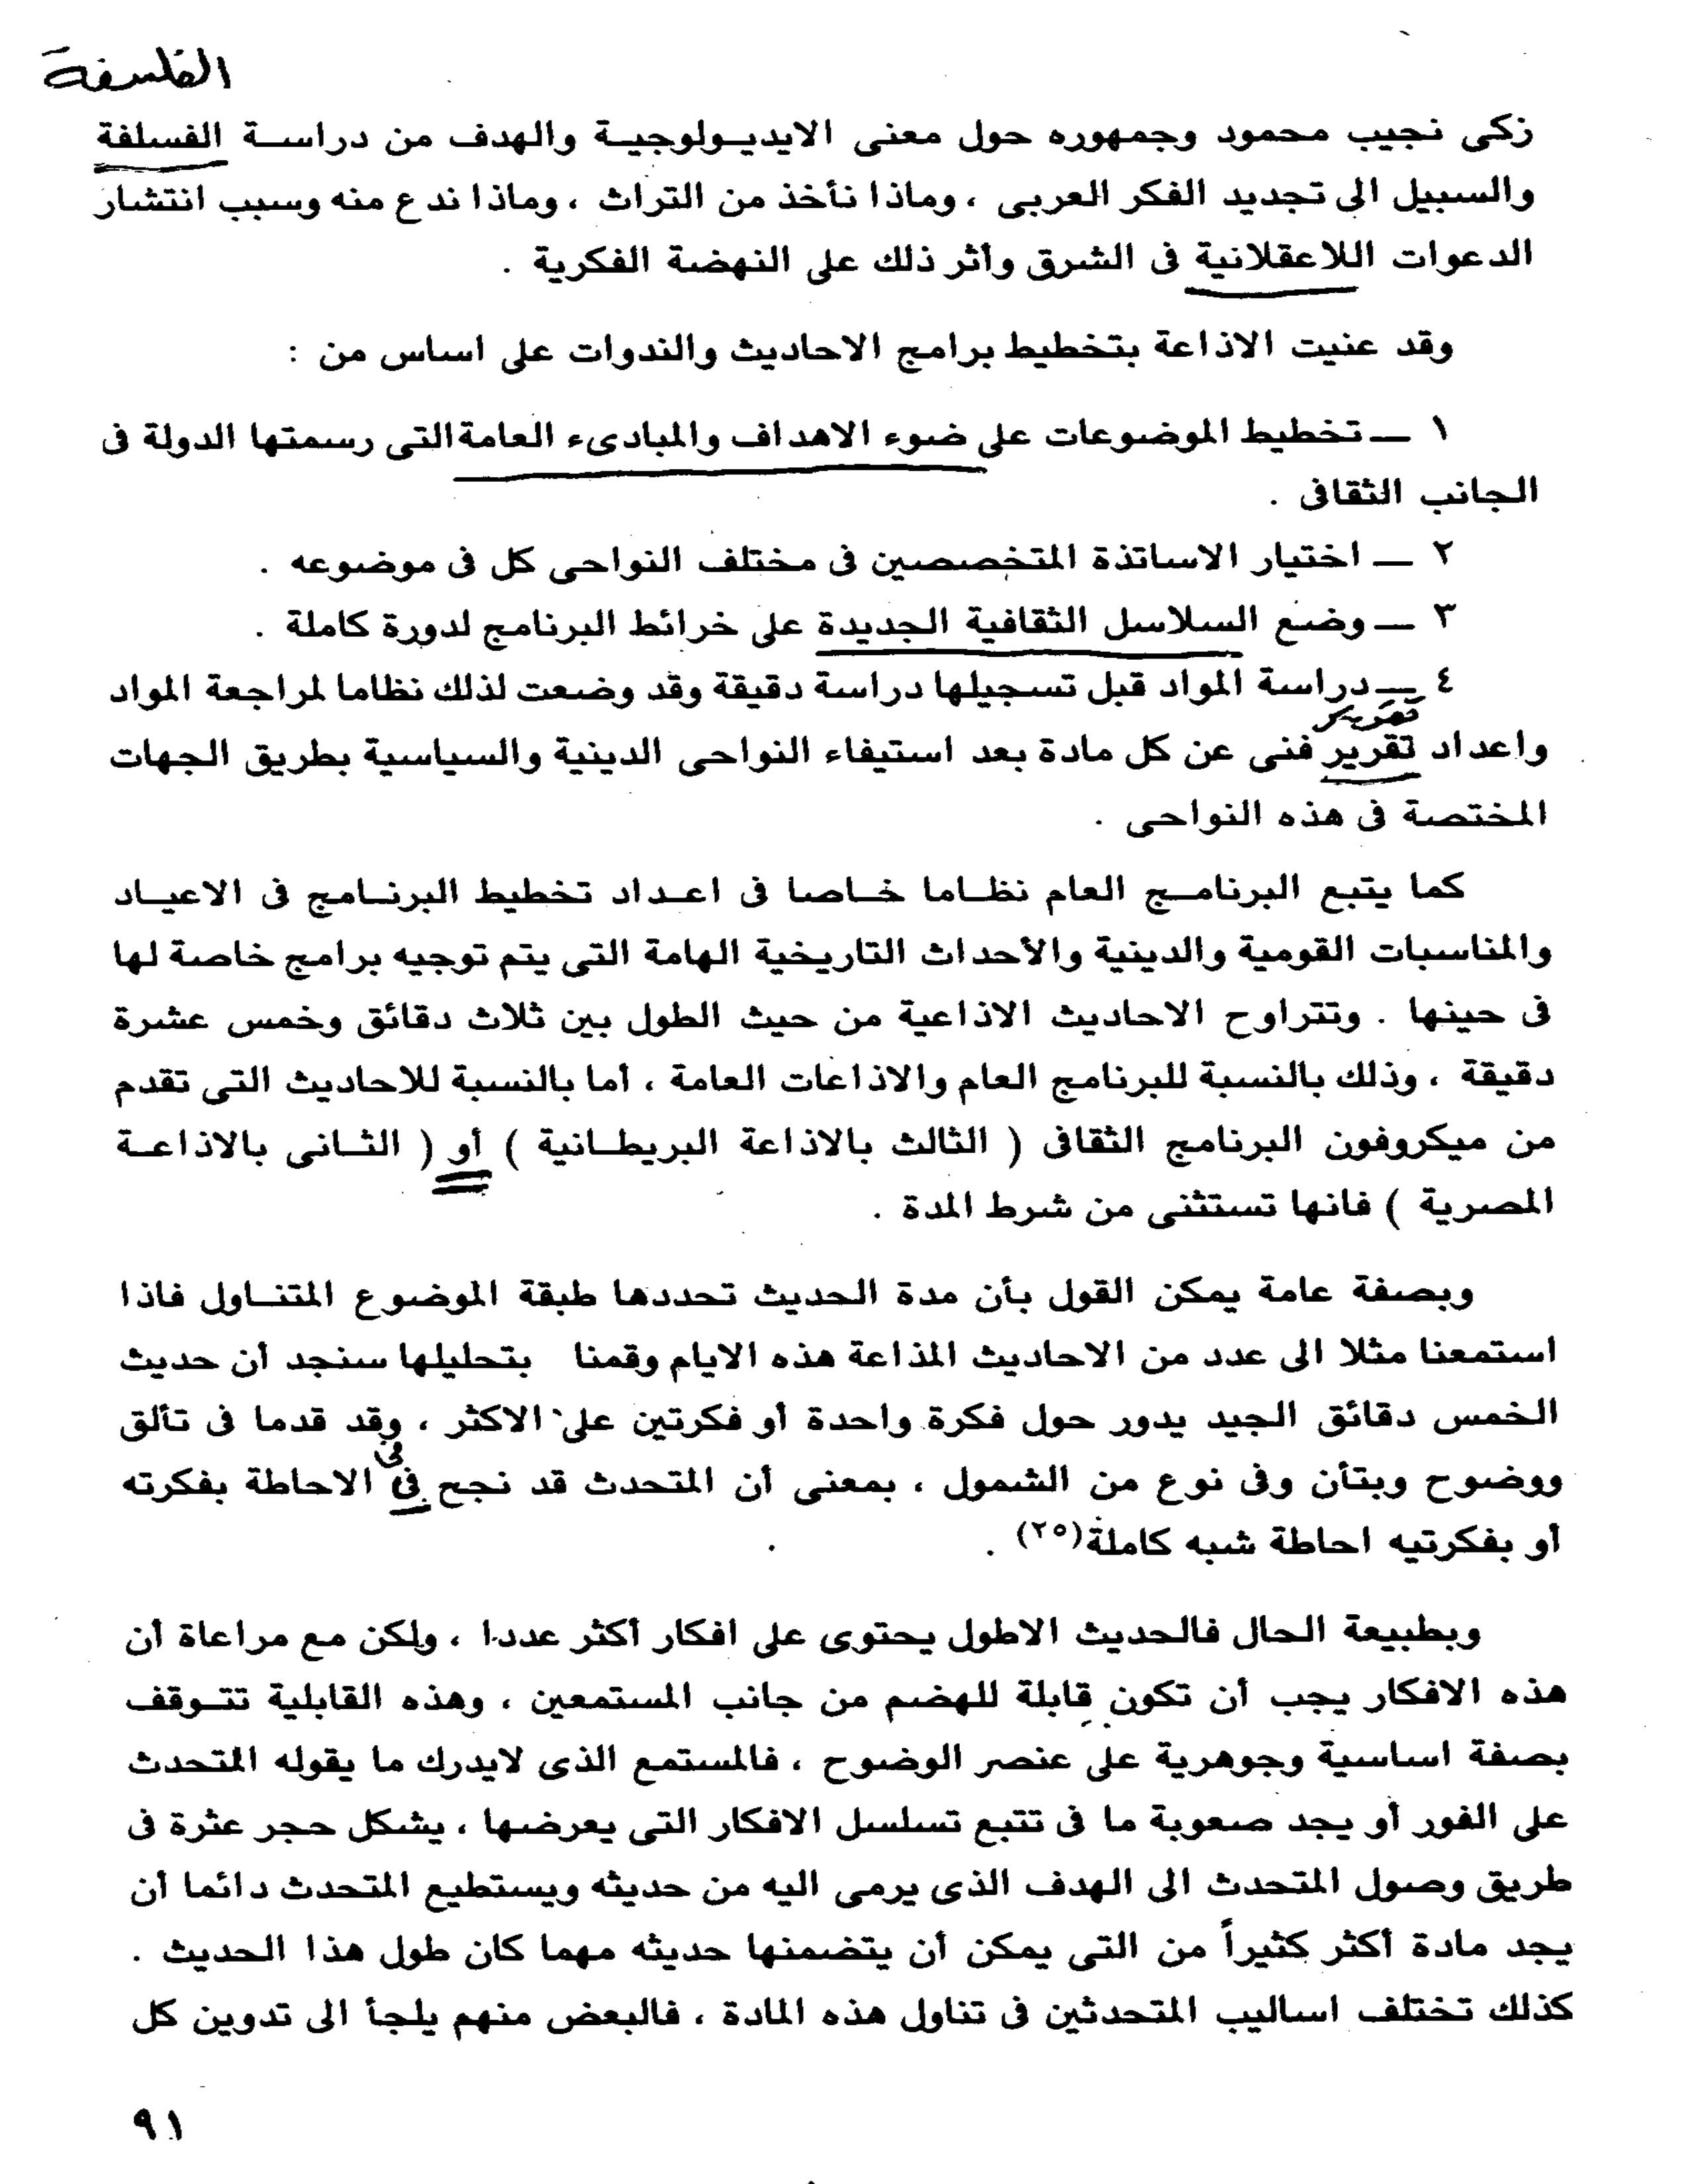 الفلسفة
زكى نجيب محمود وجمهوره حول معنى الايديولوجية والهدف من دراسة الفسلفة
والسبيل الى تجديد الفكر العربى ، وماذا نأخذ من التراث ، وماذا ندع منه وسبب انتشار
الدعوات اللاعقلانية فى الشرق وأثر ذلك على النهضة الفكرية .
وقد عنيت الاذاعة بتخطيط برامج الاحاديث والندوات على اساس من :
١ ــ تخطيط الموضوعات على ضوء الاهداف والمبادىء العامة التى رسمتها الدولة فى
الجانب الثقافى .
٢ ــ اختيار الاساتذة المتخصصين فى مختلف النواحى كل فى موضوعه .
٣ ــ وضع السلاسل الثقافية الجديدة على خرائط البرنامج لدورة كاملة .
٤ ــ دراسة المواد قبل تسجيلها دراسة دقيقة وقد وضعت لذلك نظاما لمراجعة المواد
تقرير
واعداد تقرير فنى عن كل مادة بعد استيفاء النواحى الدينية والسياسية بطريق الجهات
المختصة فى هذه النواحى .
كما يتبع البرنامج العام نظاما خاصا فى اعداد تخطيط البرنامج فى الاعياد
والمناسبات القومية والدينية والأحداث التاريخية الهامة التى يتم توجيه برامج خاصة لها
فى حينها . وتتراوح الاحاديث الاذاعية من حيث الطول بين ثلاث دقائق وخمس عشرة
دقيقة ، وذلك بالنسبة للبرنامج العام والاذاعات العامة ، أما بالنسبة للاحاديث التى تقدم
من ميكروفون البرنامج الثقافى ( الثالث بالاذاعة البريطانية ) أو ( الثانى بالاذاعة
المصرية ) فانها تستثنى من شرط المدة .
وبصفة عامة يمكن القول بأن مدة الحديث تحددها طبقة الموضوع المتناول فاذا
استمعنا مثلا الى عدد من الاحاديث المذاعة هذه الايام وقمنا بتحليلها سنجد أن حديث
الخمس دقائق الجيد يدور حول فكرة واحدة أو فكرتين على الاكثر ، وقد قدما فى تألق
فى
ووضوح وبتأن وفى نوع من الشمول ، بمعنى أن المتحدث قد نجح فى الاحاطة بفكرته
أو بفكرتيه احاطة شبه كاملة(٢٥) .
وبطبيعة الحال فالحديث الاطول يحتوى على افكار أكثر عددا ، ولكن مع مراعاة أن
هذه الافكار يجب أن تكون قابلة للهضم من جانب المستمعين ، وهذه القابلية تتوقف
بصفة اساسية وجوهرية على عنصر الوضوح ، فالمستمع الذى لايدرك ما يقوله المتحدث
على الفور أو يجد صعوبة ما فى تتبع تسلسل الافكار التى يعرضها ، يشكل حجر عثرة فى
طريق وصول المتحدث الى الهدف الذى يرمى اليه من حديثه ويستطيع المتحدث دائما أن
يجد مادة أكثر كثيراً من التى يمكن أن يتضمنها حديثه مهما كان طول هذا الحديث .
كذلك تختلف اساليب المتحدثين فى تناول هذه المادة ، فالبعض منهم يلجأ الى تدوين كل
٩١